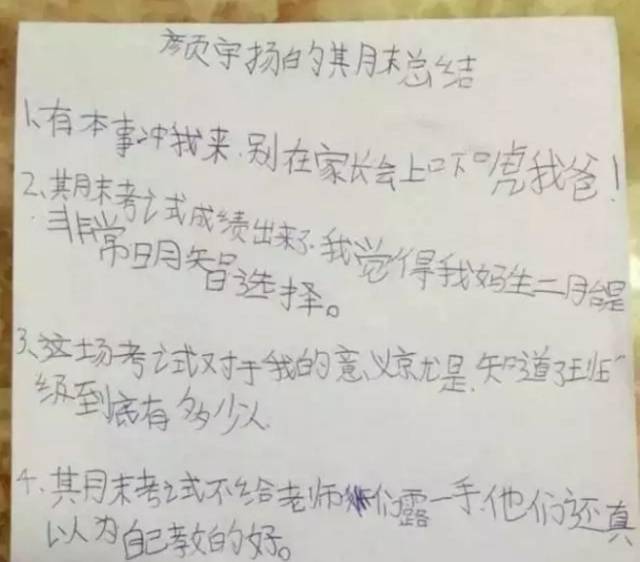 颜宇扬的期末总结
1、有本事冲我来,别在家长会上吓唬我爸!
2、期末考试成绩出来了.我觉得我妈生二胎是
非常明智选择。
3、这场考试对于我的意义就是,知道了班
级到底有多少人
4、期末考试不给老师们露一手,他们还真
以为自己教的好。